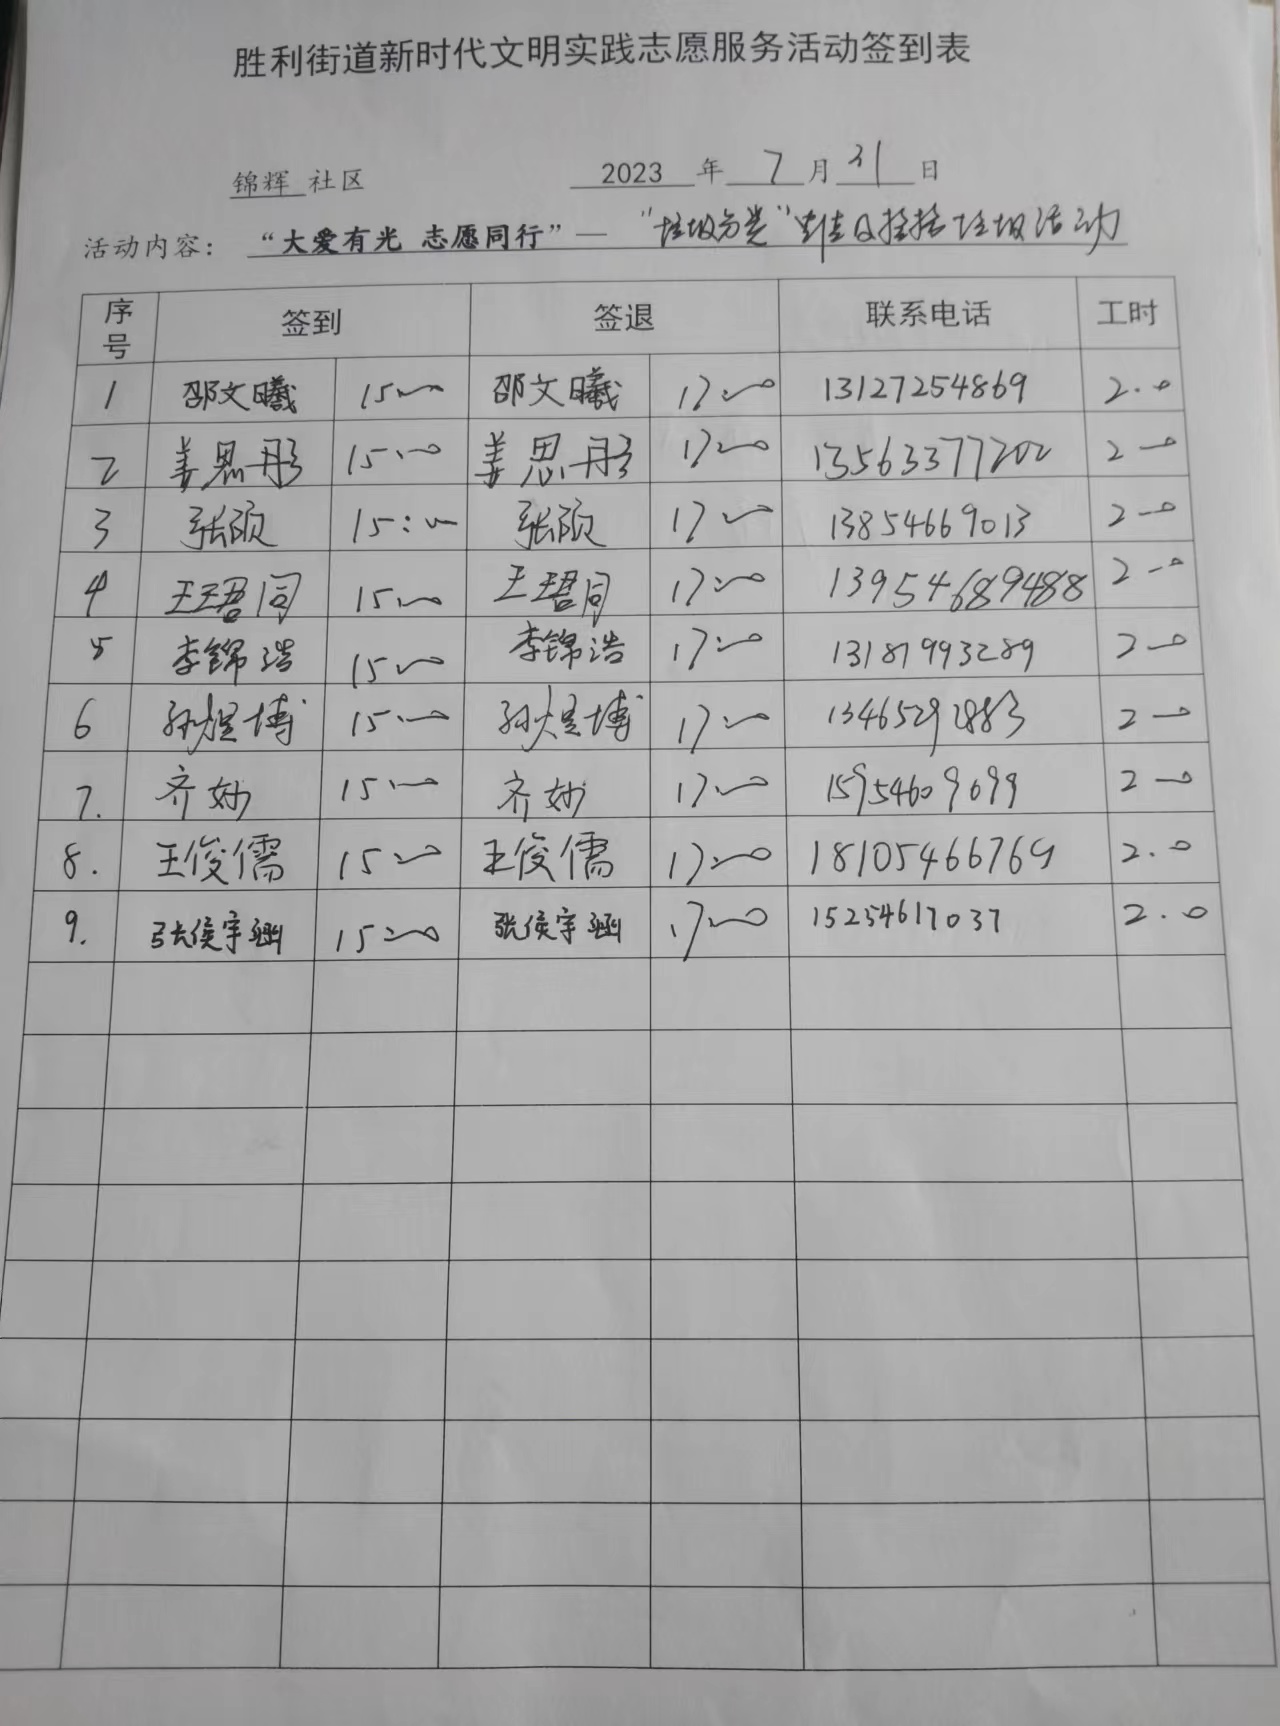 胜利街道新时代文明实践志愿服务活动签到表
锦辉 社区 2023 年 7 月 31 日
活动内容： “大爱有光 志愿同行”— “垃圾分类” 垃圾活动
序号 签到 签退 联系电话 工时
1 邵文曦 15:00 邵文曦 17:00 13127254869 2.0
2 姜思彤 15:00 姜思彤 17:00 13563377202 2.0
3 张硕 15:00 张硕 17:00 13854669013 2.0
4 王珺同 15:00 王珺同 17:00 13954689488 2.0
5 李锦浩 15:00 李锦浩 17:00 13181993289 2.0
6 孙煜博 15:00 孙煜博 17:00 13465292883 2.0
7. 齐妙 15:00 齐妙 17:00 15954609699 2.0
8. 王俊儒 15:00 王俊儒 17:00 18105466769 2.0
9. 张侯宇涵 15:00 张侯宇涵 17:00 15254617037 2.0